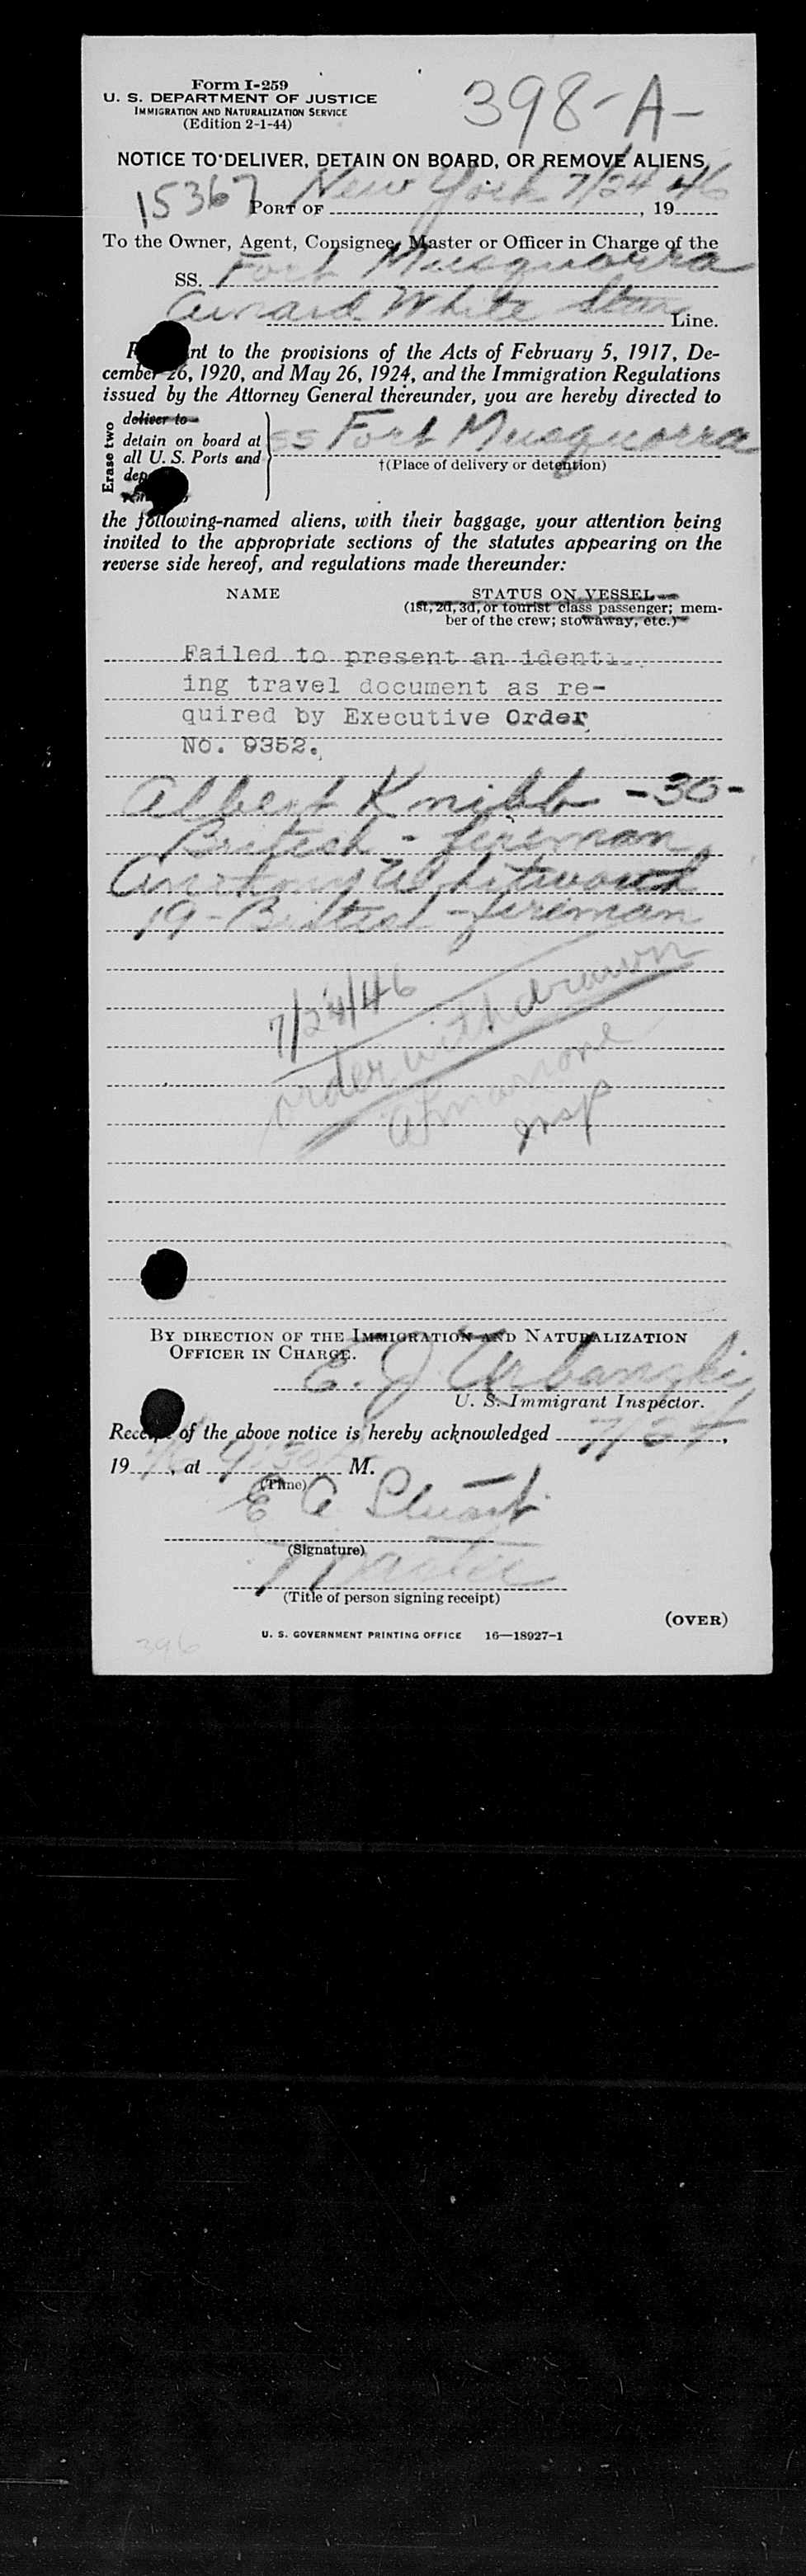 Form I-259
U. S. DEPARTMENT OF JUSTICE
IMMIGRATION AND NATURALIZATION SERVICE
(Edition 2-1-44)
398-A-
NOTICE TO DELIVER, DETAIN ON BOARD, OR REMOVE ALIENS
15367 PORT OF New York 7/24, 1946
To the Owner, Agent, Consignee, Master or Officer in Charge of the
SS. Fort Musquarra
Cunard White Star Line.
to the provisions of the Acts of February 5, 1917, De-
cember 26, 1920, and May 26, 1924, and the Immigration Regulations
issued by the Attorney General thereunder, you are hereby directed to
Erase two
deliver to
detain on board at
all U. S. Ports and
SS Fort Musquarra
†(Place of delivery or detention)
the following-named aliens, with their baggage, your attention being
invited to the appropriate sections of the statutes appearing on the
reverse side hereof, and regulations made thereunder:
NAME
STATUS ON VESSEL
(1st, 2d, 3d, or tourist class passenger; mem-
ber of the crew; stowaway, etc.)
Failed to present an identi
ing travel document as re-
quired by Executive Order
No. 9352.
Albert Knibb -30-
British - fireman
Whitworth
19 - British - fireman
7/24/46
order withdrawn
Insp
BY DIRECTION OF THE IMMIGRATION AND NATURALIZATION
OFFICER IN CHARGE.
E. J. Urbanski
U. S. Immigrant Inspector.
Receipt of the above notice is hereby acknowledged 7/24,
1946, at 9:30 A M.
(Time)
E A Stuart
(Signature)
Master
(Title of person signing receipt)
(OVER)
U. S. GOVERNMENT PRINTING OFFICE 16—18927-1
396